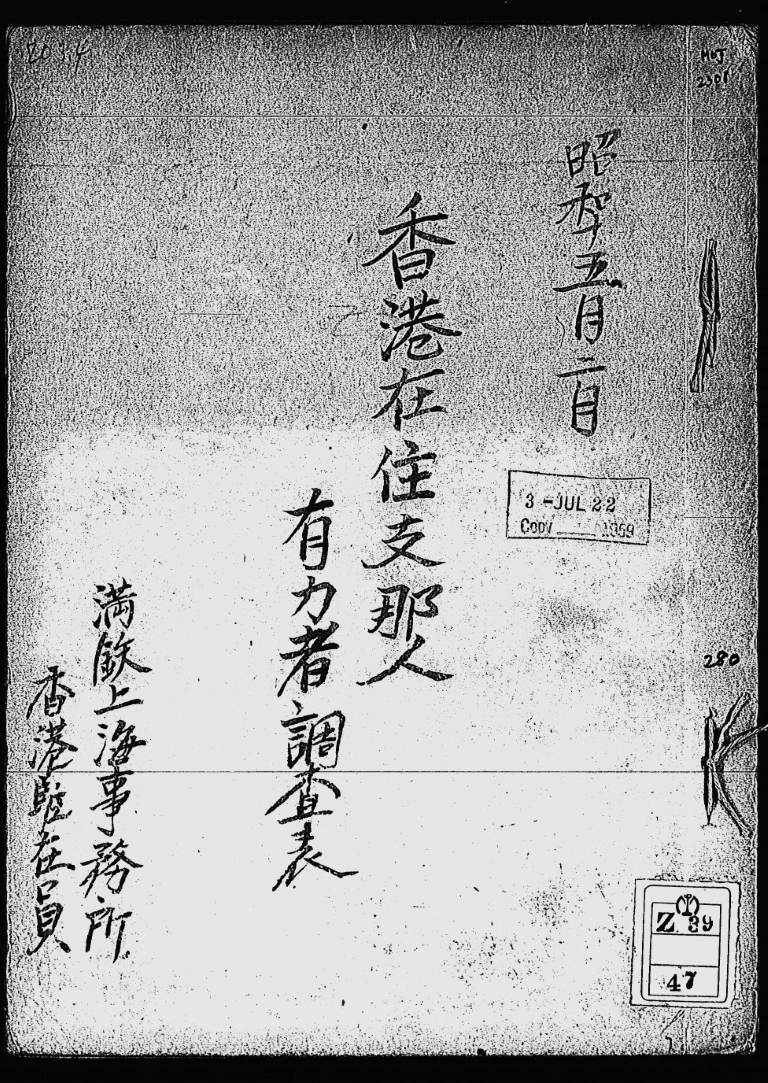 MOJ
昭和十五月二日
香港在住支那人
有力者調査表
満鉄上海事務所
香港駐在員
3 -JUL 22
Copy
280
Z 39
47